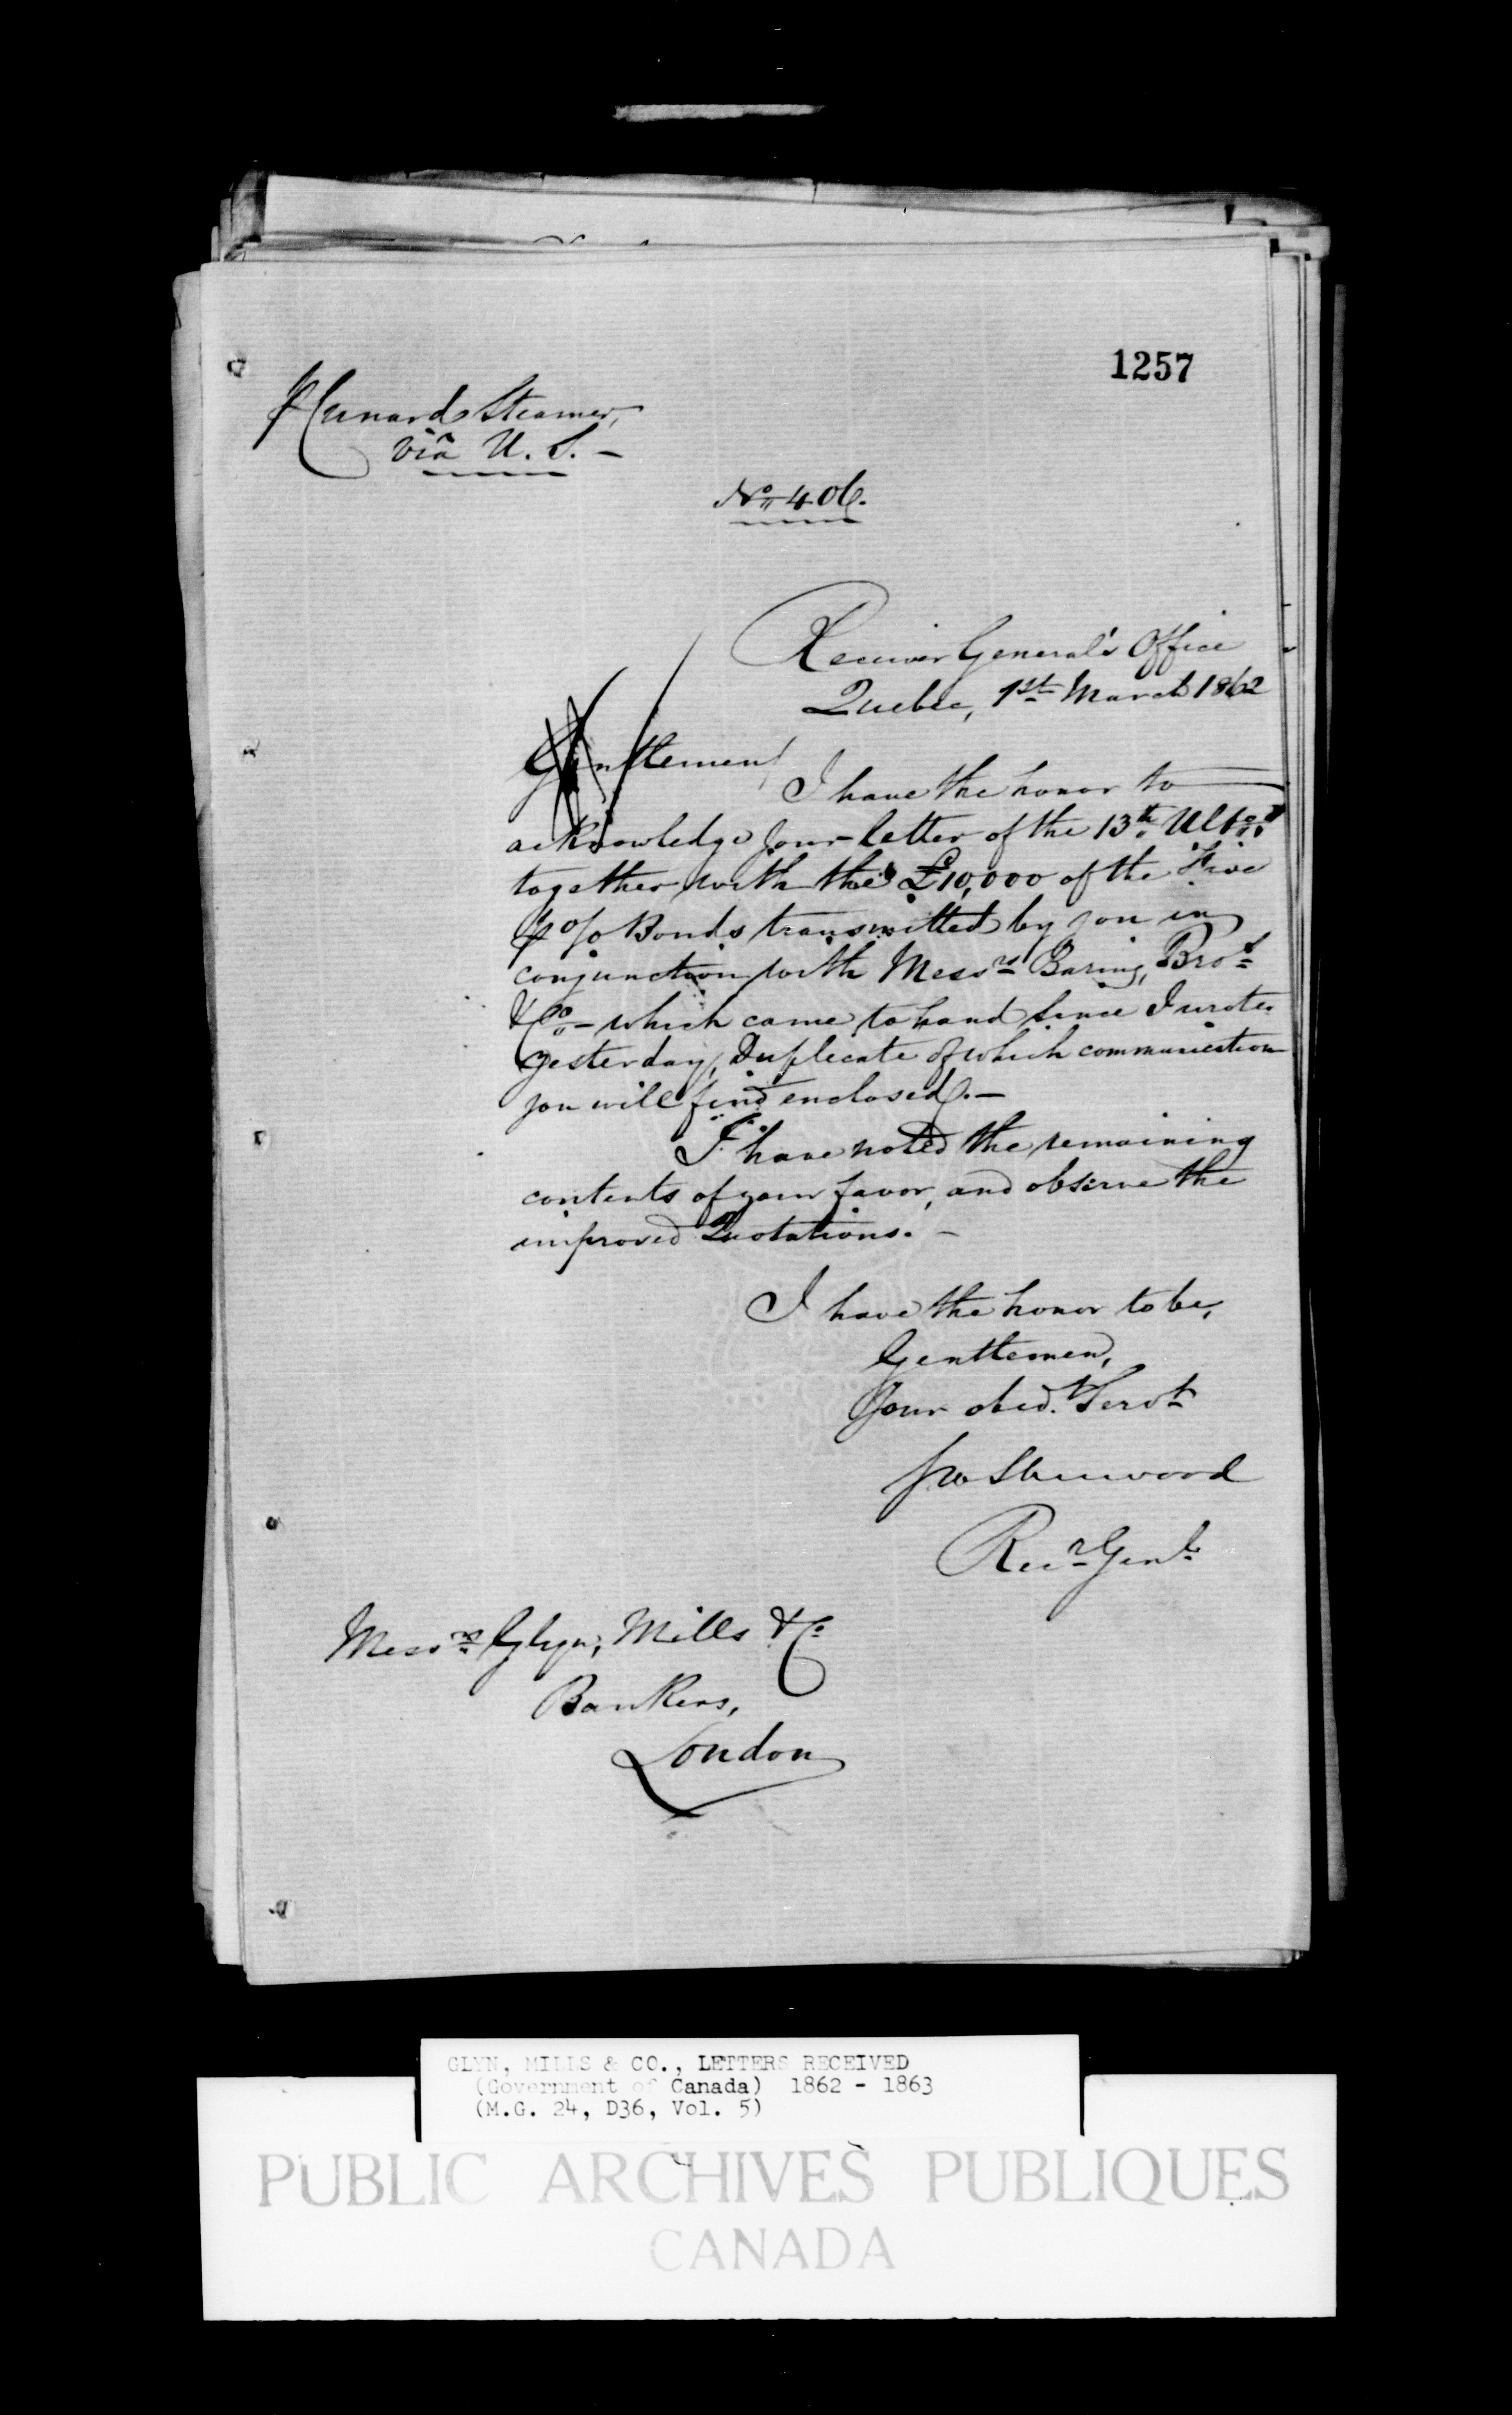 1257
⅌ Cunard Steamer,
viâ U. S. —
No. 406.
Receiver General's Office
Quebec, 1st March 1862
Gentlemen,
I have the honor to
acknowledge your letter of the 13th Ulto.
together with the £10,000 of the Five
⅌ % Bonds transmitted by you in
conjunction with Messrs Baring, Bros
& Co. – which came to hand since I wrote
yesterday, Duplicate of which communication
you will find enclosed. —
I have noted the remaining
contents of your favor, and observe the
improved Quotations. —
I have the honor to be,
Gentlemen,
Your obedt Servt
Sherwood
Recr Genl
Messrs Glyn, Mills & Co
Bankers,
London
GLYN, MILLS & CO., LETTERS RECEIVED
(Government of Canada) 1862 - 1863
(M.G. 24, D36, Vol. 5)
PUBLIC ARCHIVES PUBLIQUES
CANADA